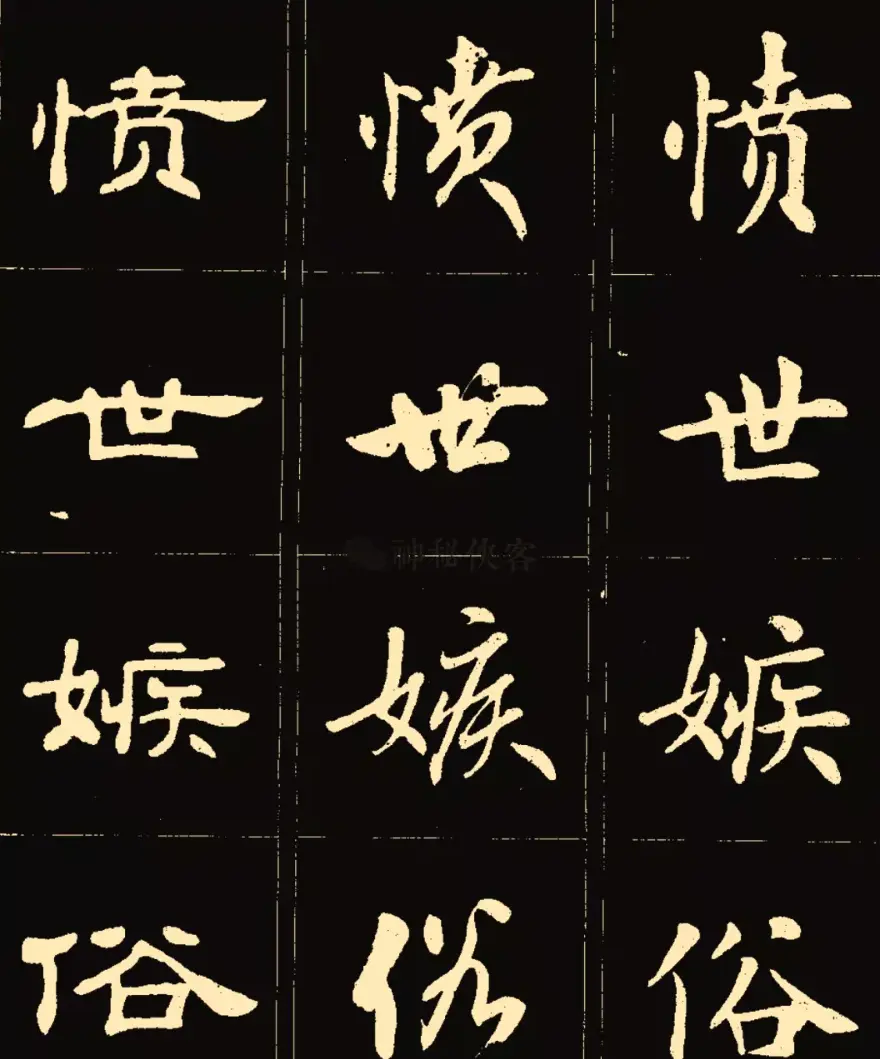 愤愤愤
世世世
神秘侠客
嫉嫉嫉
俗俗俗